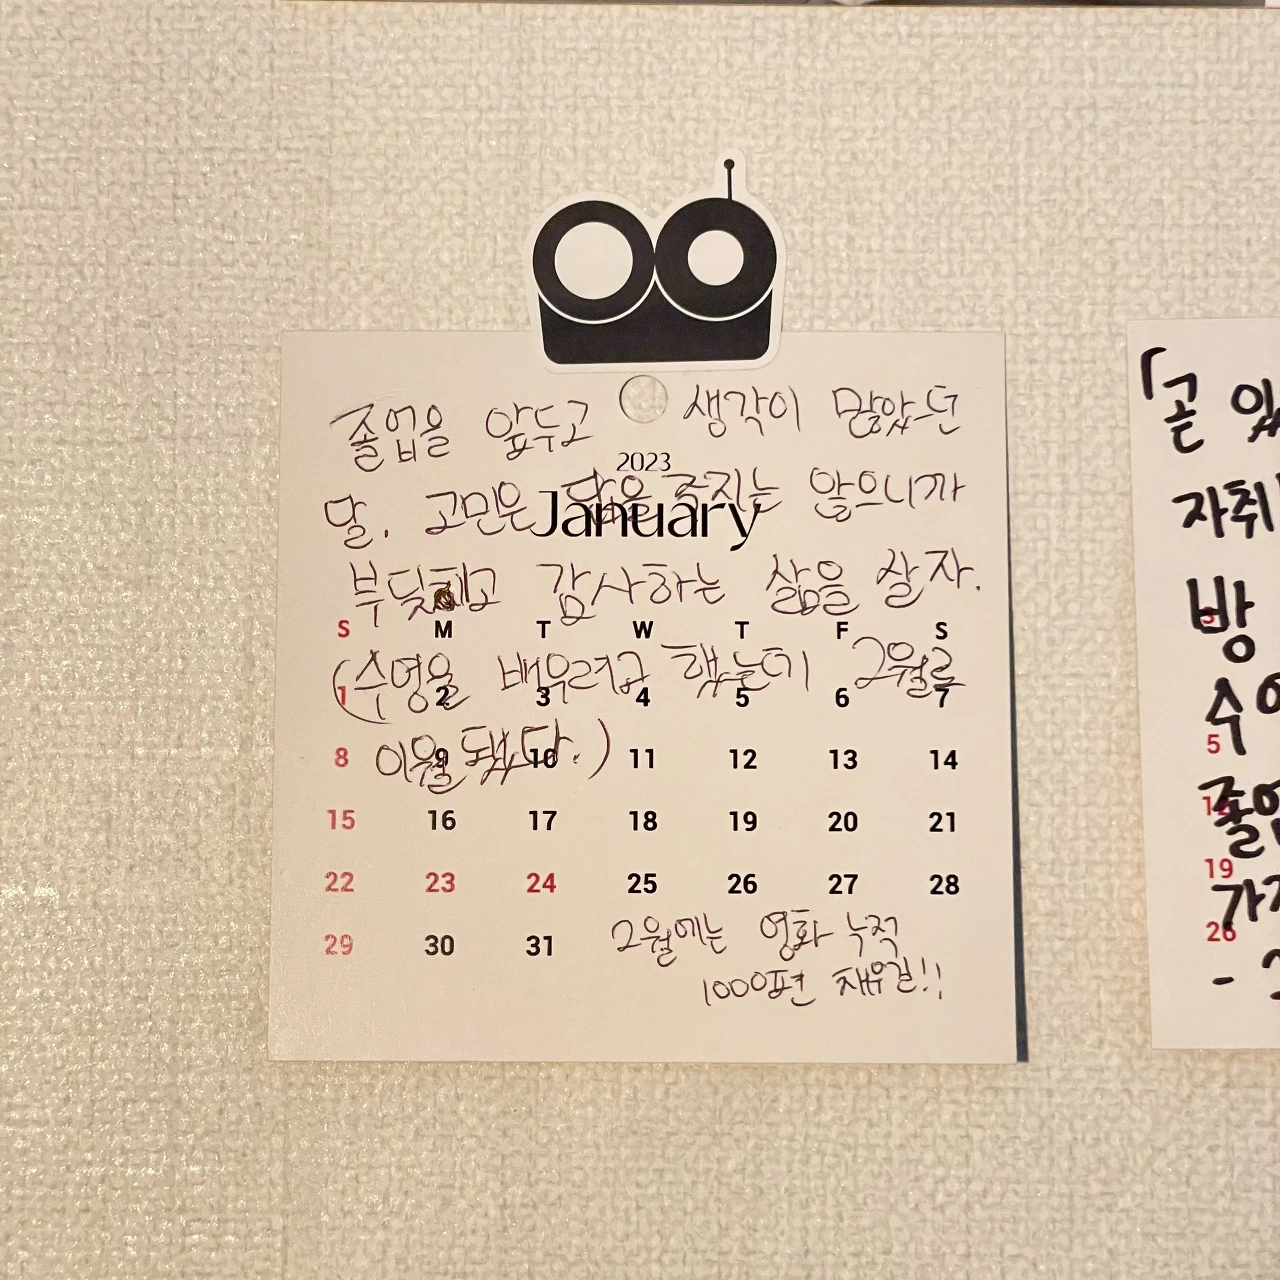 졸업을 앞두고 생각이 많았던
2023
달. 고민은 답을 주지는 않으니까
January
부딪히고 감사하는 삶을 살자.
S M T W T F S
(수영을 배우려고 했는데 2월로
1 2 3 4 5 6 7
이월됐다.)
8 9 10 11 12 13 14
15 16 17 18 19 20 21
22 23 24 25 26 27 28
29 30 31
2월에는 영화 누적
1000편 채우길!!
「곧
자취
방
수
5
12
19
가
26
-